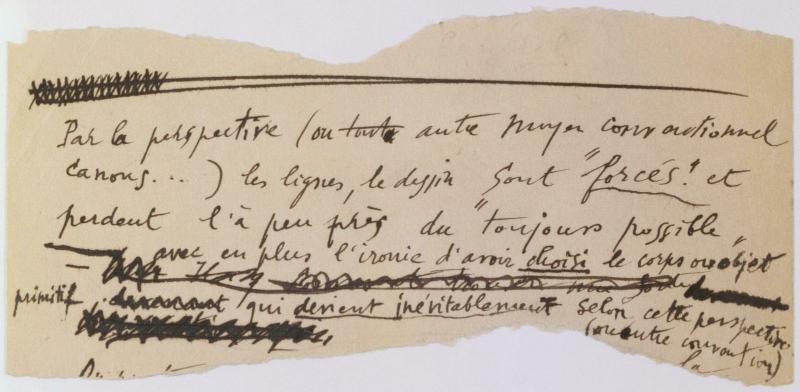 Par la perspective (ou toute autre moyen conventionnel
canons...) les lignes, le dessin sont "forcés" et
perdent l'à peu près du "toujours possible"
— avec en plus l'ironie d'avoir choisi le corps ou objet
primitif, qui devient inévitablement selon cette perspective
(ou autre convention)
la